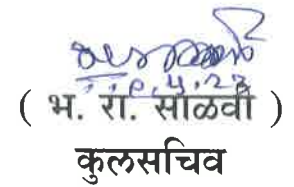 ( भ. रा. साळवी )
कुलसचिव